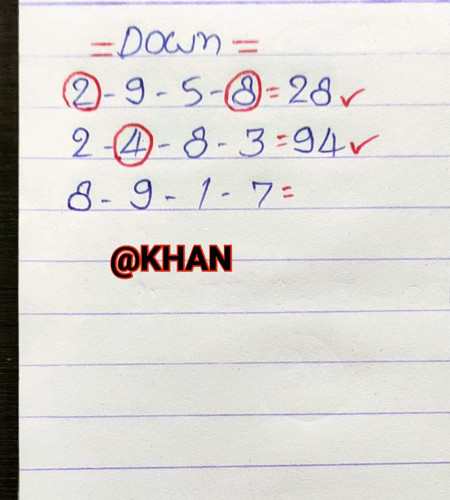 = Down =
2-9-5-8=28✓
2-4-8-3=94✓
8-9-1-7=
@KHAN